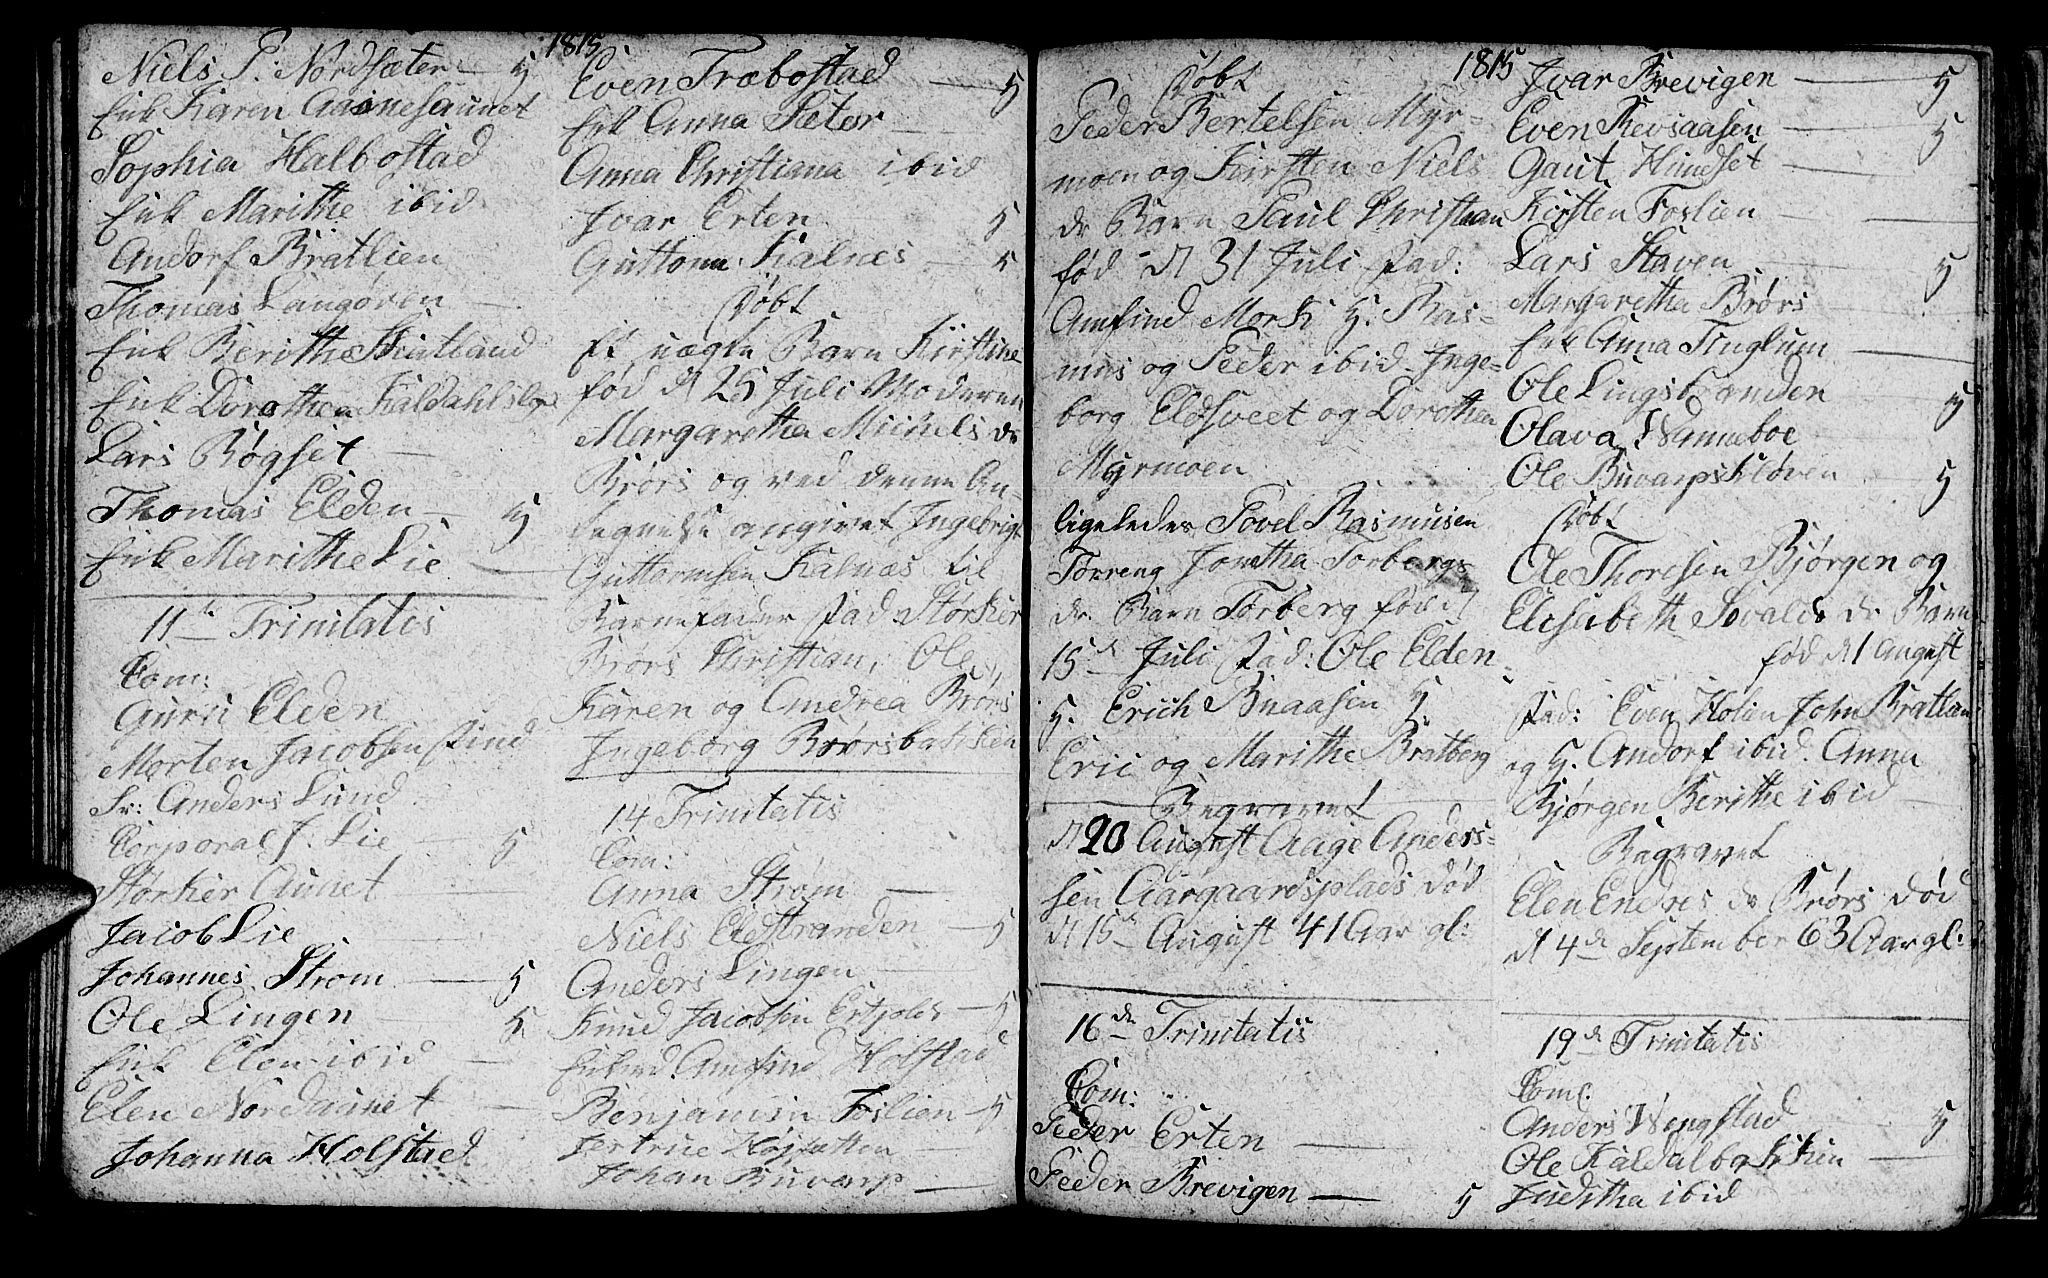 1815
Niels P: Nordsæter — 5
Enk Karen Aunet
Sophia Halbostad
Enk Marithe ibid
Andorf Bratlien
Thomas Langøren —
Enk Berithe
Enk Dorothea Kaldahlslop
Lars Røgset —
Thomas Elden — 5
Enk Marithe Lie —
11te Trinitatis
Com:
Guru Elden
Morten Jacobsen
Sr: Anders Lund
Corporal J. Lie — 5
Størker Aunet
Jacob Lie
Johannes Strøm — 5
Ole Lingen — 5
Enk Elen ibid —
Elen Nordaunet —
Johanna Holstad
Even Træbostad — 5
Enk Anna Sæter —
Anna Christiana ibid
Ivar Erten 5
Guttorm Kalnes — 5
Døbt
Et uægte Barn Kirstine
fød d 25 Juli Moderen
Margaretha Michels dr
Brørs og ved denne An-
angivet Ingebrigt
Guttormsen Kalnæs til
Barnefader Fad Størker
Brørs Christian, Ole,
Karen og Andrea Brørs
Ingeborg Brørsbakken
14 Trinitatis
Com:
Anna Strøm —
Niels Eldstranden — 5
Anders Lingen —
Knud Jacobsen — 5
Amfind Holstad
Benjamin Foslien — 5
Johan Buvarp —
1815
Døbt
Peder Bertelsen Myr-
moen og Kirsten Niels
dr Barn Paul Christian
fød d 31 Juli Fad:
Amfind Mork H. Ras-
mus og Peder ibid. Inge-
borg Eldsveet og Dorothea
Myrmoen
ligeledes Povel Rasmusen
Torreng Torbergs
dr Barn Torberg fød d
15d Juli Fad: Ole Elden-
H. Erich Buaasen H.
Eric og Marithe Bratberg
Begravet
d 20 August Aage Anders-
sen Aargaardsplads død
d 15d August 41 Aar gl:
16de Trinitatis
Com:
Peder Erten —
Peder Brevigen — 5
Ivar Brevigen — 5
Even Revsaasen — 5
Gaut Hundset —
Kirsten Foslien —
Lars Staven — 5
Margaretha Brørs
Enk Anna Tinglum —
Ole Lingstranden 5
Olava Wanneboe
Ole Buvarpskløven — 5
Døbt
Ole Thoresen Bjørgen og
Elisabeth dr Barn
fød d 1 August
Fad: Even Holien John Bratlien
og H. Andorf ibid. Anna
Bjørgen Berithe ibid
Begravet
Elen Endres dr Brørs død
d 4de September 63 Aar gl:
19d Trinitatis
Com:
Anders Wengstad 5
Ole Kaldalbakkien —
Juditha ibid